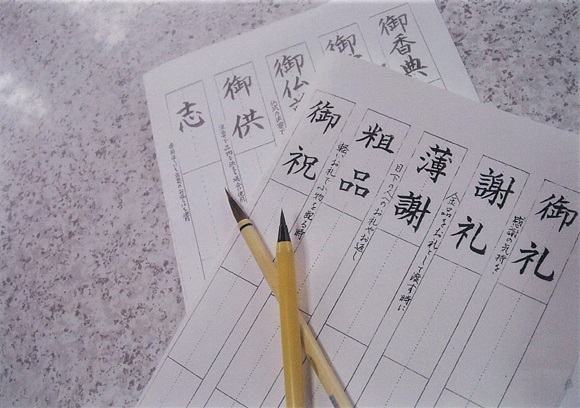 御礼
感謝の気持を
謝礼
金品をお礼として渡す時に
薄謝
目下の人へのお礼やお返し
粗品
軽いお礼で小物を配る時
御祝
御香典
御
御仏
御供
志